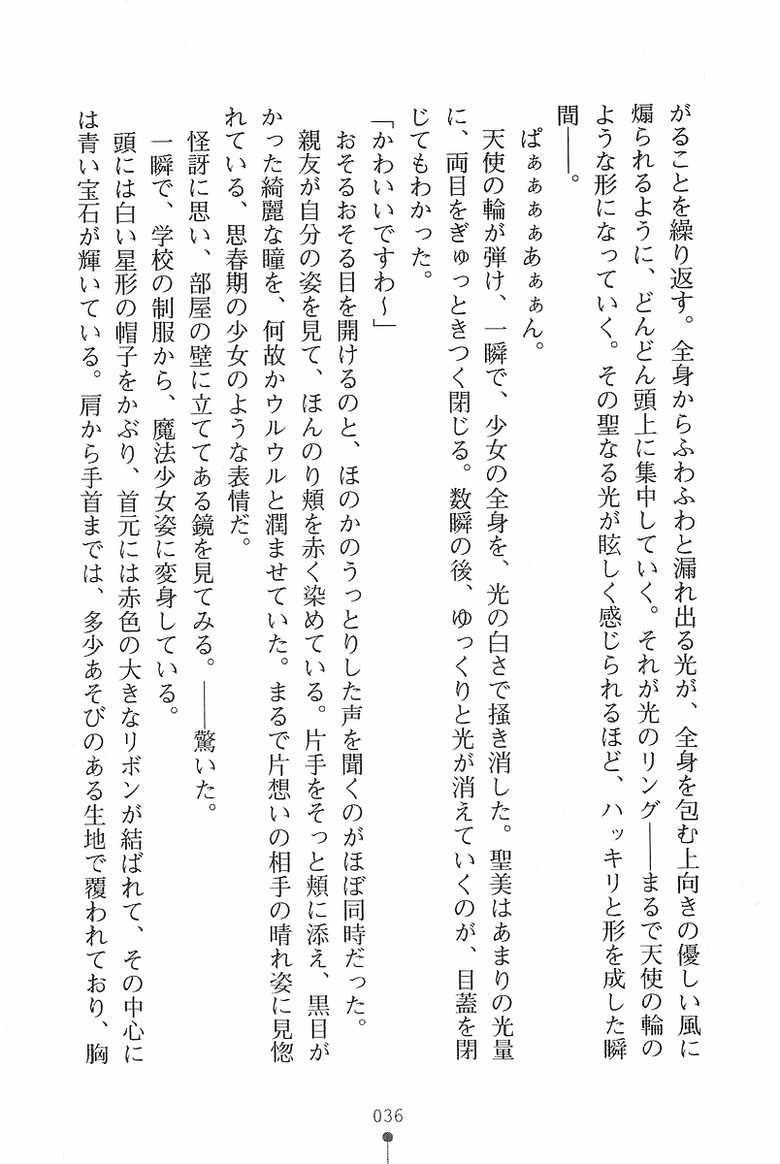 がることを繰り返す。全身からふわふわと漏れ出る光が、全身を包む上向きの優しい風に
煽られるように、どんどん頭上に集中していく。それが光のリング――まるで天使の輪の
ような形になっていく。その聖なる光が眩しく感じられるほど、ハッキリと形を成した瞬
間――。
ぱぁぁぁぁあぁぁん。
天使の輪が弾け、一瞬で、少女の全身を、光の白さで掻き消した。聖美はあまりの光量
に、両目をぎゅっときつく閉じる。数瞬の後、ゆっくりと光が消えていくのが、目蓋を閉
じてもわかった。
「かわいいですわ～」
おそるおそる目を開けるのと、ほのかのうっとりした声を聞くのがほぼ同時だった。
親友が自分の姿を見て、ほんのり頬を赤く染めている。片手をそっと頬に添え、黒目が
かった綺麗な瞳を、何故かウルウルと潤ませていた。まるで片想いの相手の晴れ姿に見惚
れている、思春期の少女のような表情だ。
怪訝に思い、部屋の壁に立ててある鏡を見てみる。――驚いた。
一瞬で、学校の制服から、魔法少女姿に変身している。
頭には白い星形の帽子をかぶり、首元には赤色の大きなリボンが結ばれて、その中心に
は青い宝石が輝いている。肩から手首までは、多少あそびのある生地で覆われており、胸
036